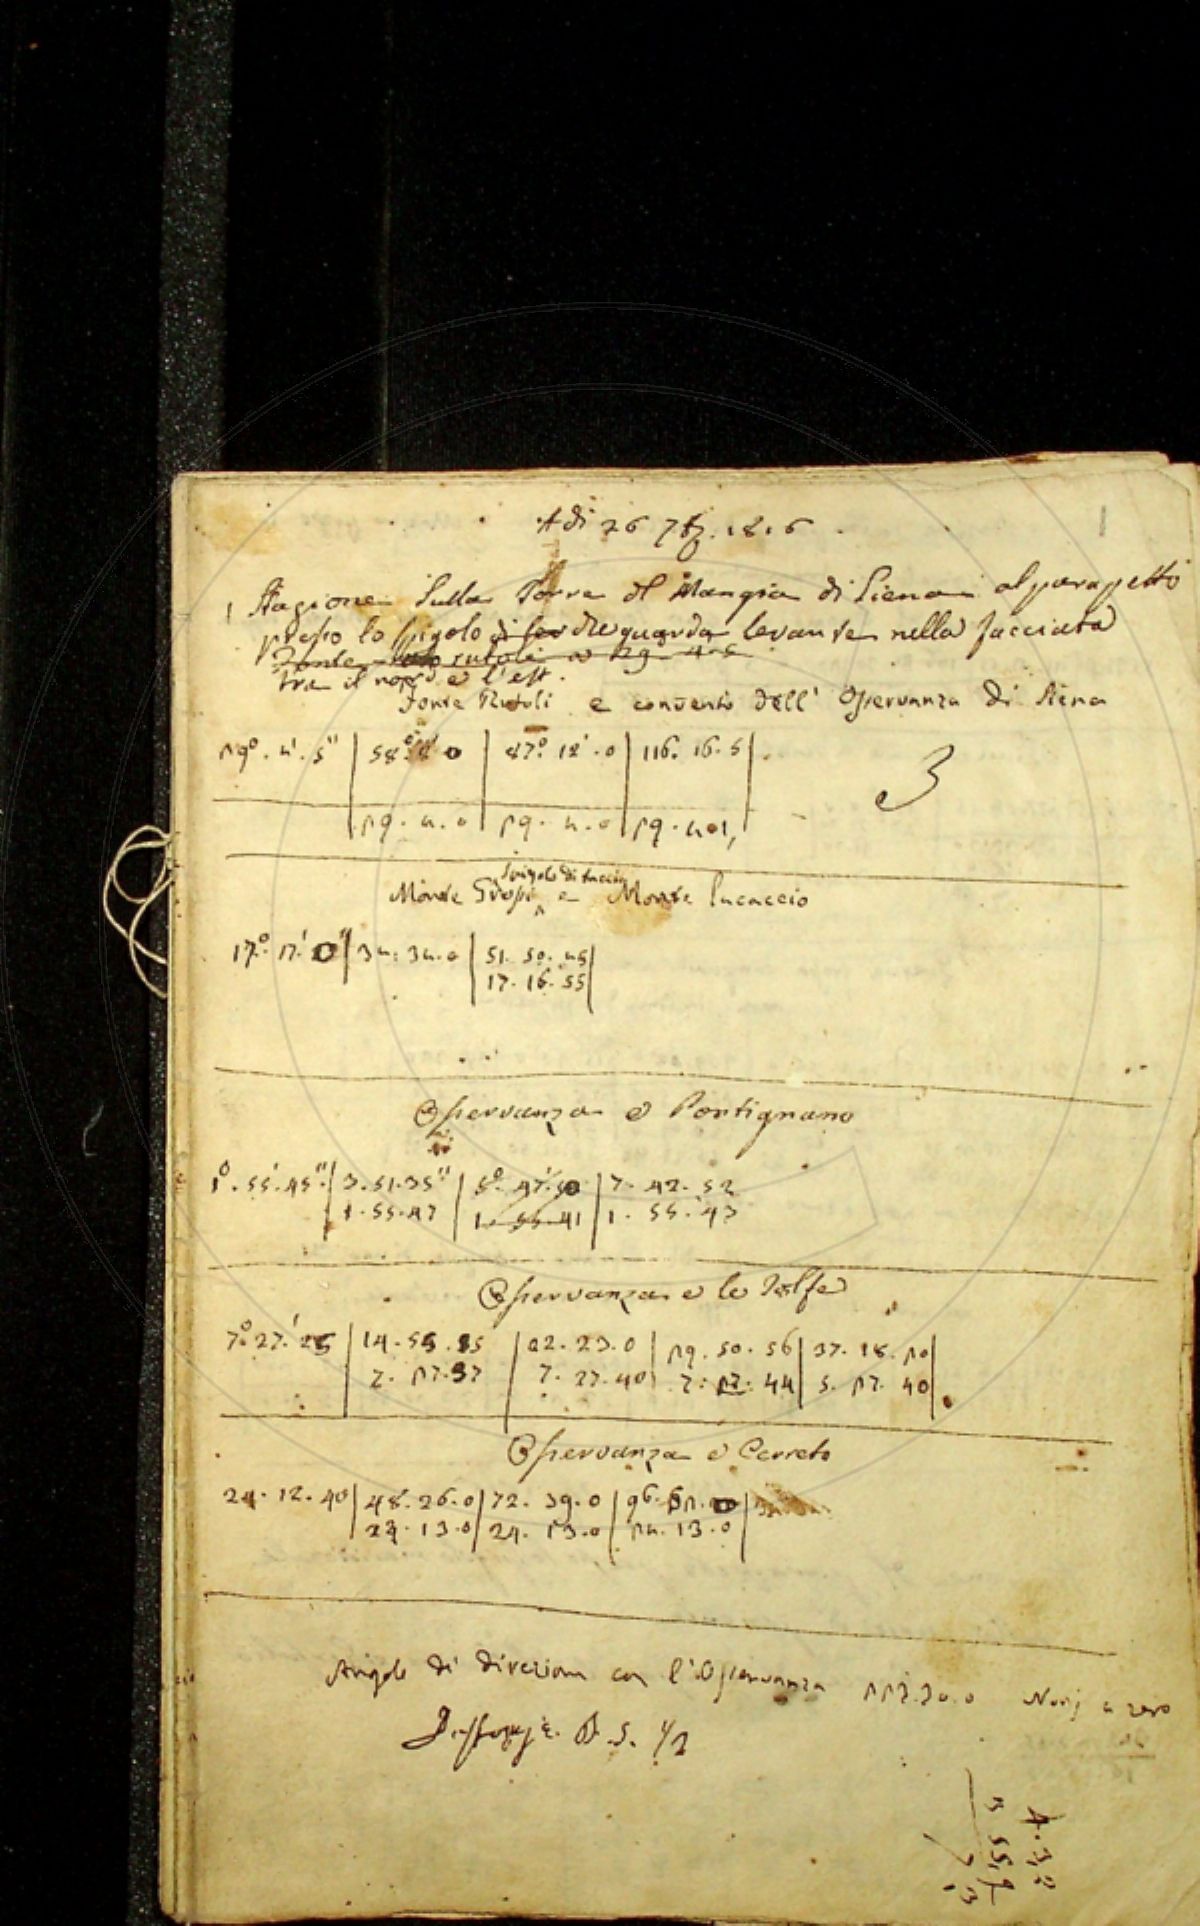 Adi 26 7bre. 1816
1
1 Stazione Sulla Torre del Mangia di Siena al parapetto
presso lo Spigolo di fer che guarda levante nella facciata
Fonte rutoli a 29 4 5
tra il nord e l'est.
Fonte Rutoli e convento dell' Osservanza di Siena
29° . 4' . 5" | 58° 8' 0 | 87° 12' . 0 | 116. 16. 5
3
29 . 4 . 0 | 29 . 4 . 0 | 29 . 4 . 1
Spigolo di faccia
Monte Grossi ^ e Monte Lucaccio
17° . 17' 0" | 34 . 34 . 0 | 51. 50. 45
17. 16. 55
Osservanza e Pontignano
1° . 55' . 45" | 3. 51. 35" | 5° . 47' . 50 | 7. 42. 52
1. 55. 47 | 1. 55. 41 | 1. 55. 43
Osservanza e le Tolfe
7° 27' 25 | 14. 55. 15 | 22. 23. 0 | 29. 50. 56 | 37. 18. 20
7. 27. 37 | 7. 27. 40 | 7. 27. 44 | 5. 27. 40
Osservanza e Cerreto
24. 12. 40 | 48. 26. 0 | 72. 39. 0 | 96. 52. 0
24. 13. 0 | 24. 13. 0 | 24. 13. 0
Angolo di direzion con l'Osservanza 223. 30. 0 Nonj a zero
B. 5. 1/2
4. 32
3 55.